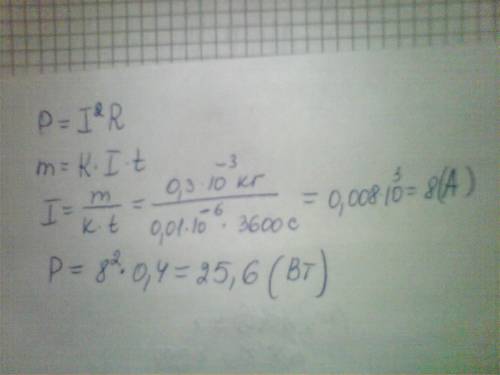 P = I²R
m = K · I · t
I = m / k · t = 0,3 · 10⁻³ кг / 0,01 · 10⁻⁶ · 3600 с = 0,008 · 10³ = 8 (А)
P = 8² · 0,4 = 25,6 (Вт)